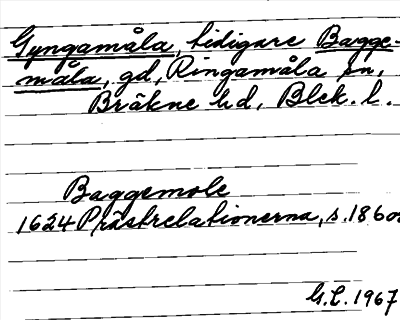 Gyngamåla, tidigare Bagge-
måla, gd, Ringamåla sn,
Bräkne hd, Blek. l.
Baggemole
1624 Prästrelationerna, s. 186
G.C. 1967